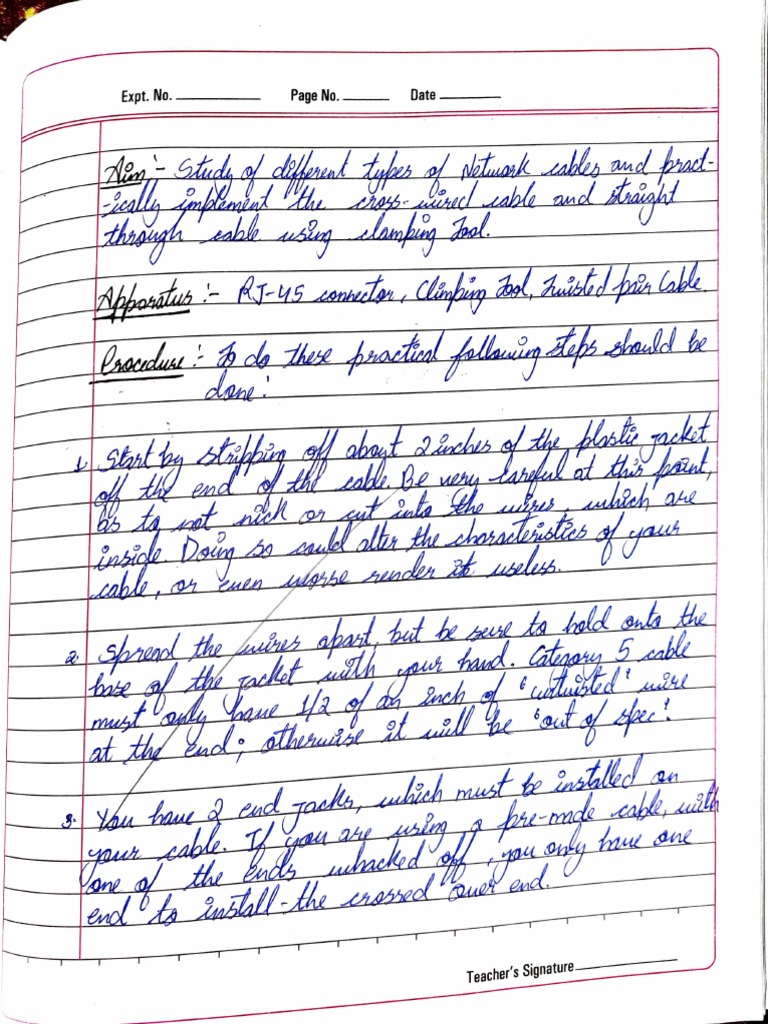 Expt. No. Page No. Date
Aim :- Study of different types of Network cables and pract-
-ically implement the cross-wired cable and straight
through cable using clamping Tool.
Apparatus :- RJ-45 connector, Climping Tool, Twisted pair Cable.
Procedure :- To do these practical following steps should be
done:
1. Start by stripping off about 2 inches of the plastic jacket
off the end of the cable. Be very careful at this point,
as to not nick or cut into the wires, which are
inside. Doing so could alter the characteristics of your
cable, or even worse render it useless.
2. Spread the wires apart, but be sure to hold onto the
base of the jacket with your hand. Category 5 cable
must only have 1/2 of an inch of 'untwisted' wire
at the end; otherwise it will be 'out of spec'.
3. You have 2 end jacks, which must be installed on
your cable. If you are using a pre-made cable, with
one of the ends whacked off, you only have one
end to install-the crossed over end.
Teacher's Signature